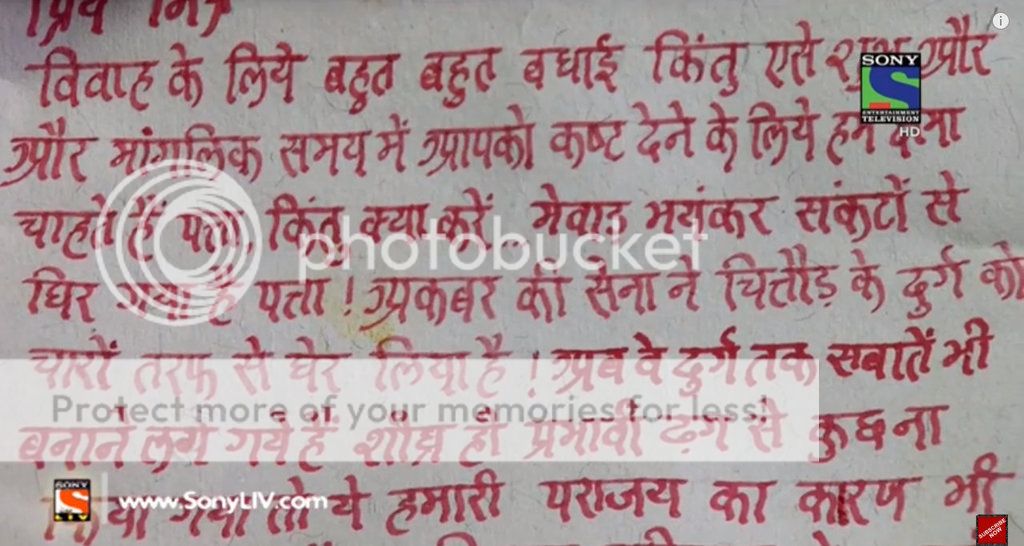 विवाह के लिये बहुत बहुत बधाई किंतु एसे और
और मांगलिक समय में आपको कष्ट देने के लिये हम क्षमा
चाहते हैं पत्ता, किंतु क्या करें... मेवाड़ भयंकर संकटों से
घिर गया है पत्ता! अकबर की सेना ने चित्तौड़ के दुर्ग को
चारों तरफ से घेर लिया है! अब वे दुर्ग तक सबातें भी
बनाने लग गये हैं शीघ्र ही प्रभावी ढंग से कुछ ना
गया तो ये हमारी पराजय का कारण भी
SONY
ENTERTAINMENT
TELEVISION
HD
photobucket
Protect more of your memories for less!
SONY
LIV
www.SonyLIV.com
SUBSCRIBE
NOW